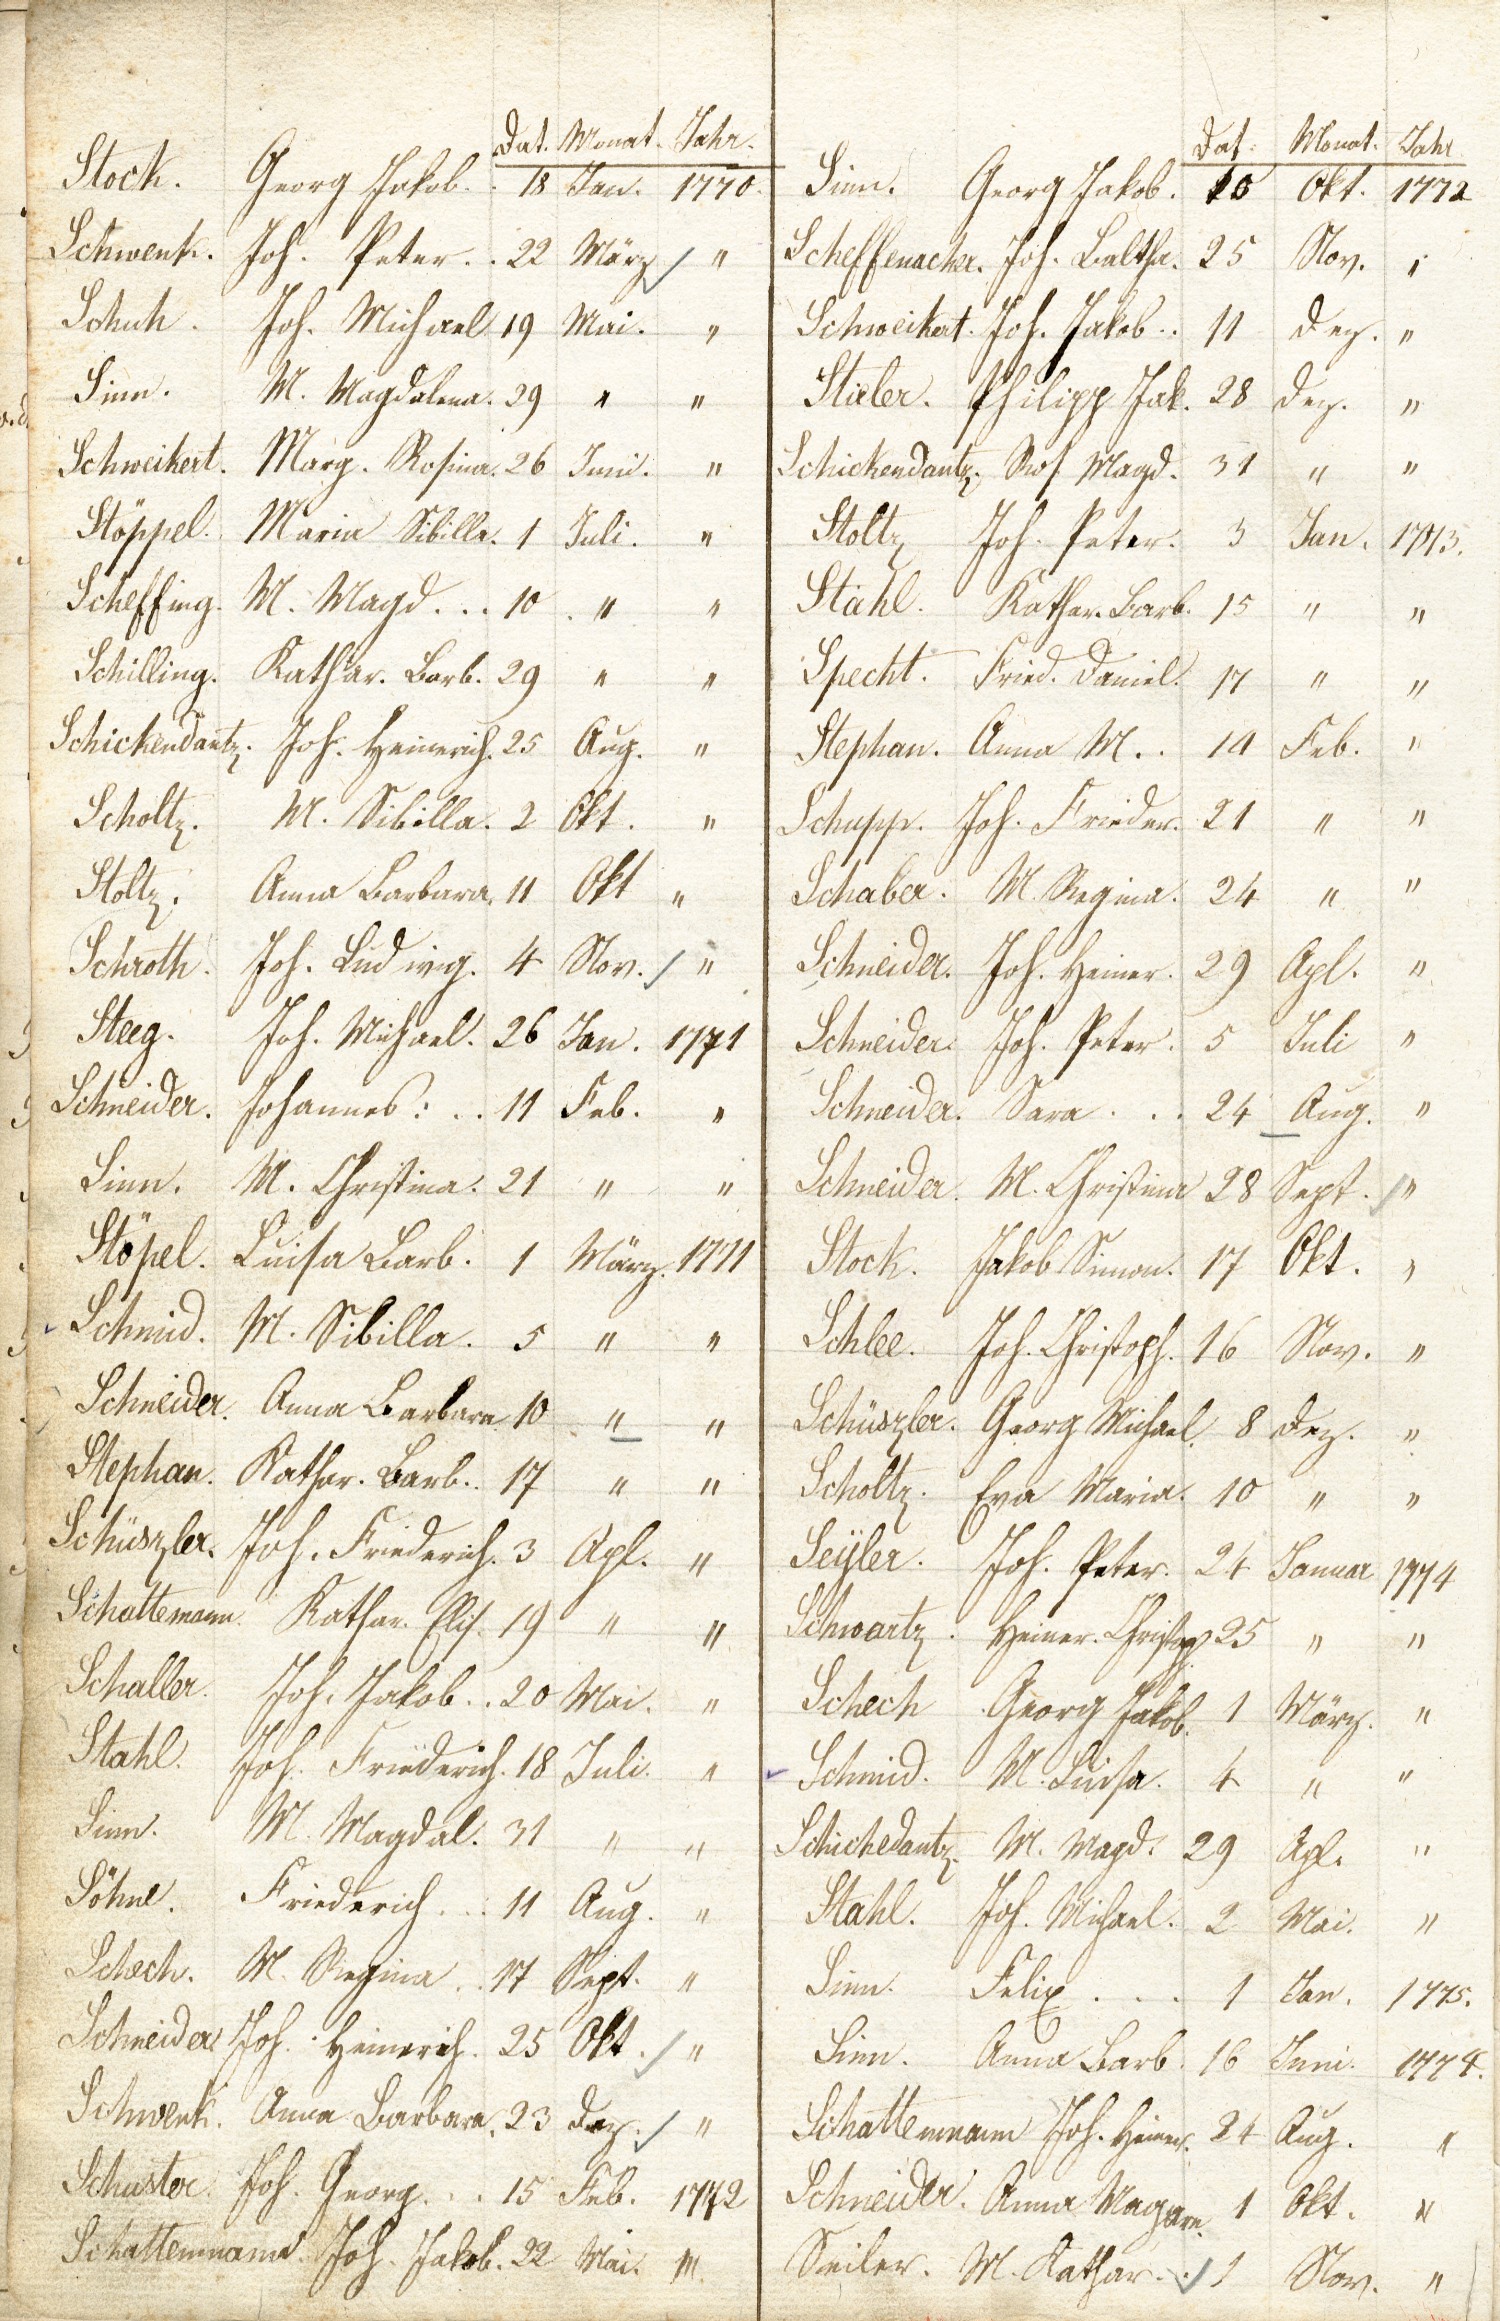 Dat. Monat. Jahr.
Stock. Georg Jakob. . 18 Jan. 1770.
Schwenk. Joh. Peter. . 22 März "
Schuh. Joh. Michael 19 Mai. "
Sinn. M. Magdalena. 29 " "
Schweikert. Marg. Rosina. 26 Juni. "
Stöppel. Maria Sibilla. 1 Juli. "
Scheffing. M. Magd. . . 10 . " "
Schilling. Kathar. Barb. 29 " "
Schickendantz. Joh. Heinerich. 25 Aug. "
Scholtz. M. Sibilla. 2 Okt. "
Stoltz. Anna Barbara. 11 Okt "
Schroth. Joh. Ludwig. 4 Nov. "
Steeg. Joh. Michael. 26 Jan. 1771
Schneider. Johannes: . . 11 Feb. "
Sinn. M. Christina. 21 " "
Stöpel. Luisa Barb. 1 März. 1771
Schmid. M. Sibilla. 5 " "
Schneider. Anna Barbara 10 " "
Stephan. Kathar. Barb. . 17 " "
Schüszler. Joh. Friederich. 3 Apl. "
Schattemann. Kathar. Elis. 19 " "
Schaller. Joh. Jakob. . 20 Mai. "
Stahl. Joh. Friederich. 18 Juli. "
Sinn. M. Magdal. 31 " "
Söhne. Friederich. . . 11 Aug. "
Schech. M. Regina . . 17 Sept. "
Schneider Joh. Heinerich. 25 Okt. "
Schwenk. Anna Barbara. 23 Dez. "
Schuster. Joh. Georg. . . 15 Feb. 1772
Schattemmann. Joh. Jakob. 22 Mai. "
Dat. Monat. Jahr
Sinn. Georg Jakob. 10 Okt. 1772
Scheffenacker. Joh. Baltha. 25 Nov. "
Schweikert. Joh. Jakob. . 11 Dez. "
Stieler. Philipp Jak. 28 Dez. "
Schickendantz. Ros. Magd. 31 " "
Stoltz Joh. Peter. 3 Jan. 1773.
Stahl. Kathar. Barb. 15 " "
Specht. Fried. Daniel. 17 " "
Stephan. Anna M. . 14 Feb. "
Schupp. Joh. Frieder. 21 " "
Schaber. M. Regina. 24 " "
Schneider. Joh. Heiner. 29 Apl. "
Schneider. Joh. Peter. 5 Juli "
Schneider. Sara . . . 24 Aug. "
Schneider. M. Christina 28 Sept. "
Stock. Jakob Simon. 17 Okt. "
Schlee. Joh. Christoph. 16 Nov. "
Schüszler. Georg Michael. 8 Dez. "
Scholtz. Eva Maria. 10 " "
Seÿler. Joh. Peter. 24 Januar 1774
Schwartz. Heiner. Christoph 25 " "
Schech Georg Jakob. 1 März. "
Schmid. M. Luisa. 4 " "
Schickedantz. M. Magd. 29 Apl. "
Stahl. Joh. Michael. 2 Mai. "
Sinn. Felix . . . 1 Jan. 1775.
Sinn. Anna Barb. 16 Juni. 1774.
Schattemmann Joh. Heiner. 24 Aug. "
Schneider. Anna Magare. 1 Okt. "
Seiler. M. Kathar. . 1 Nov. "